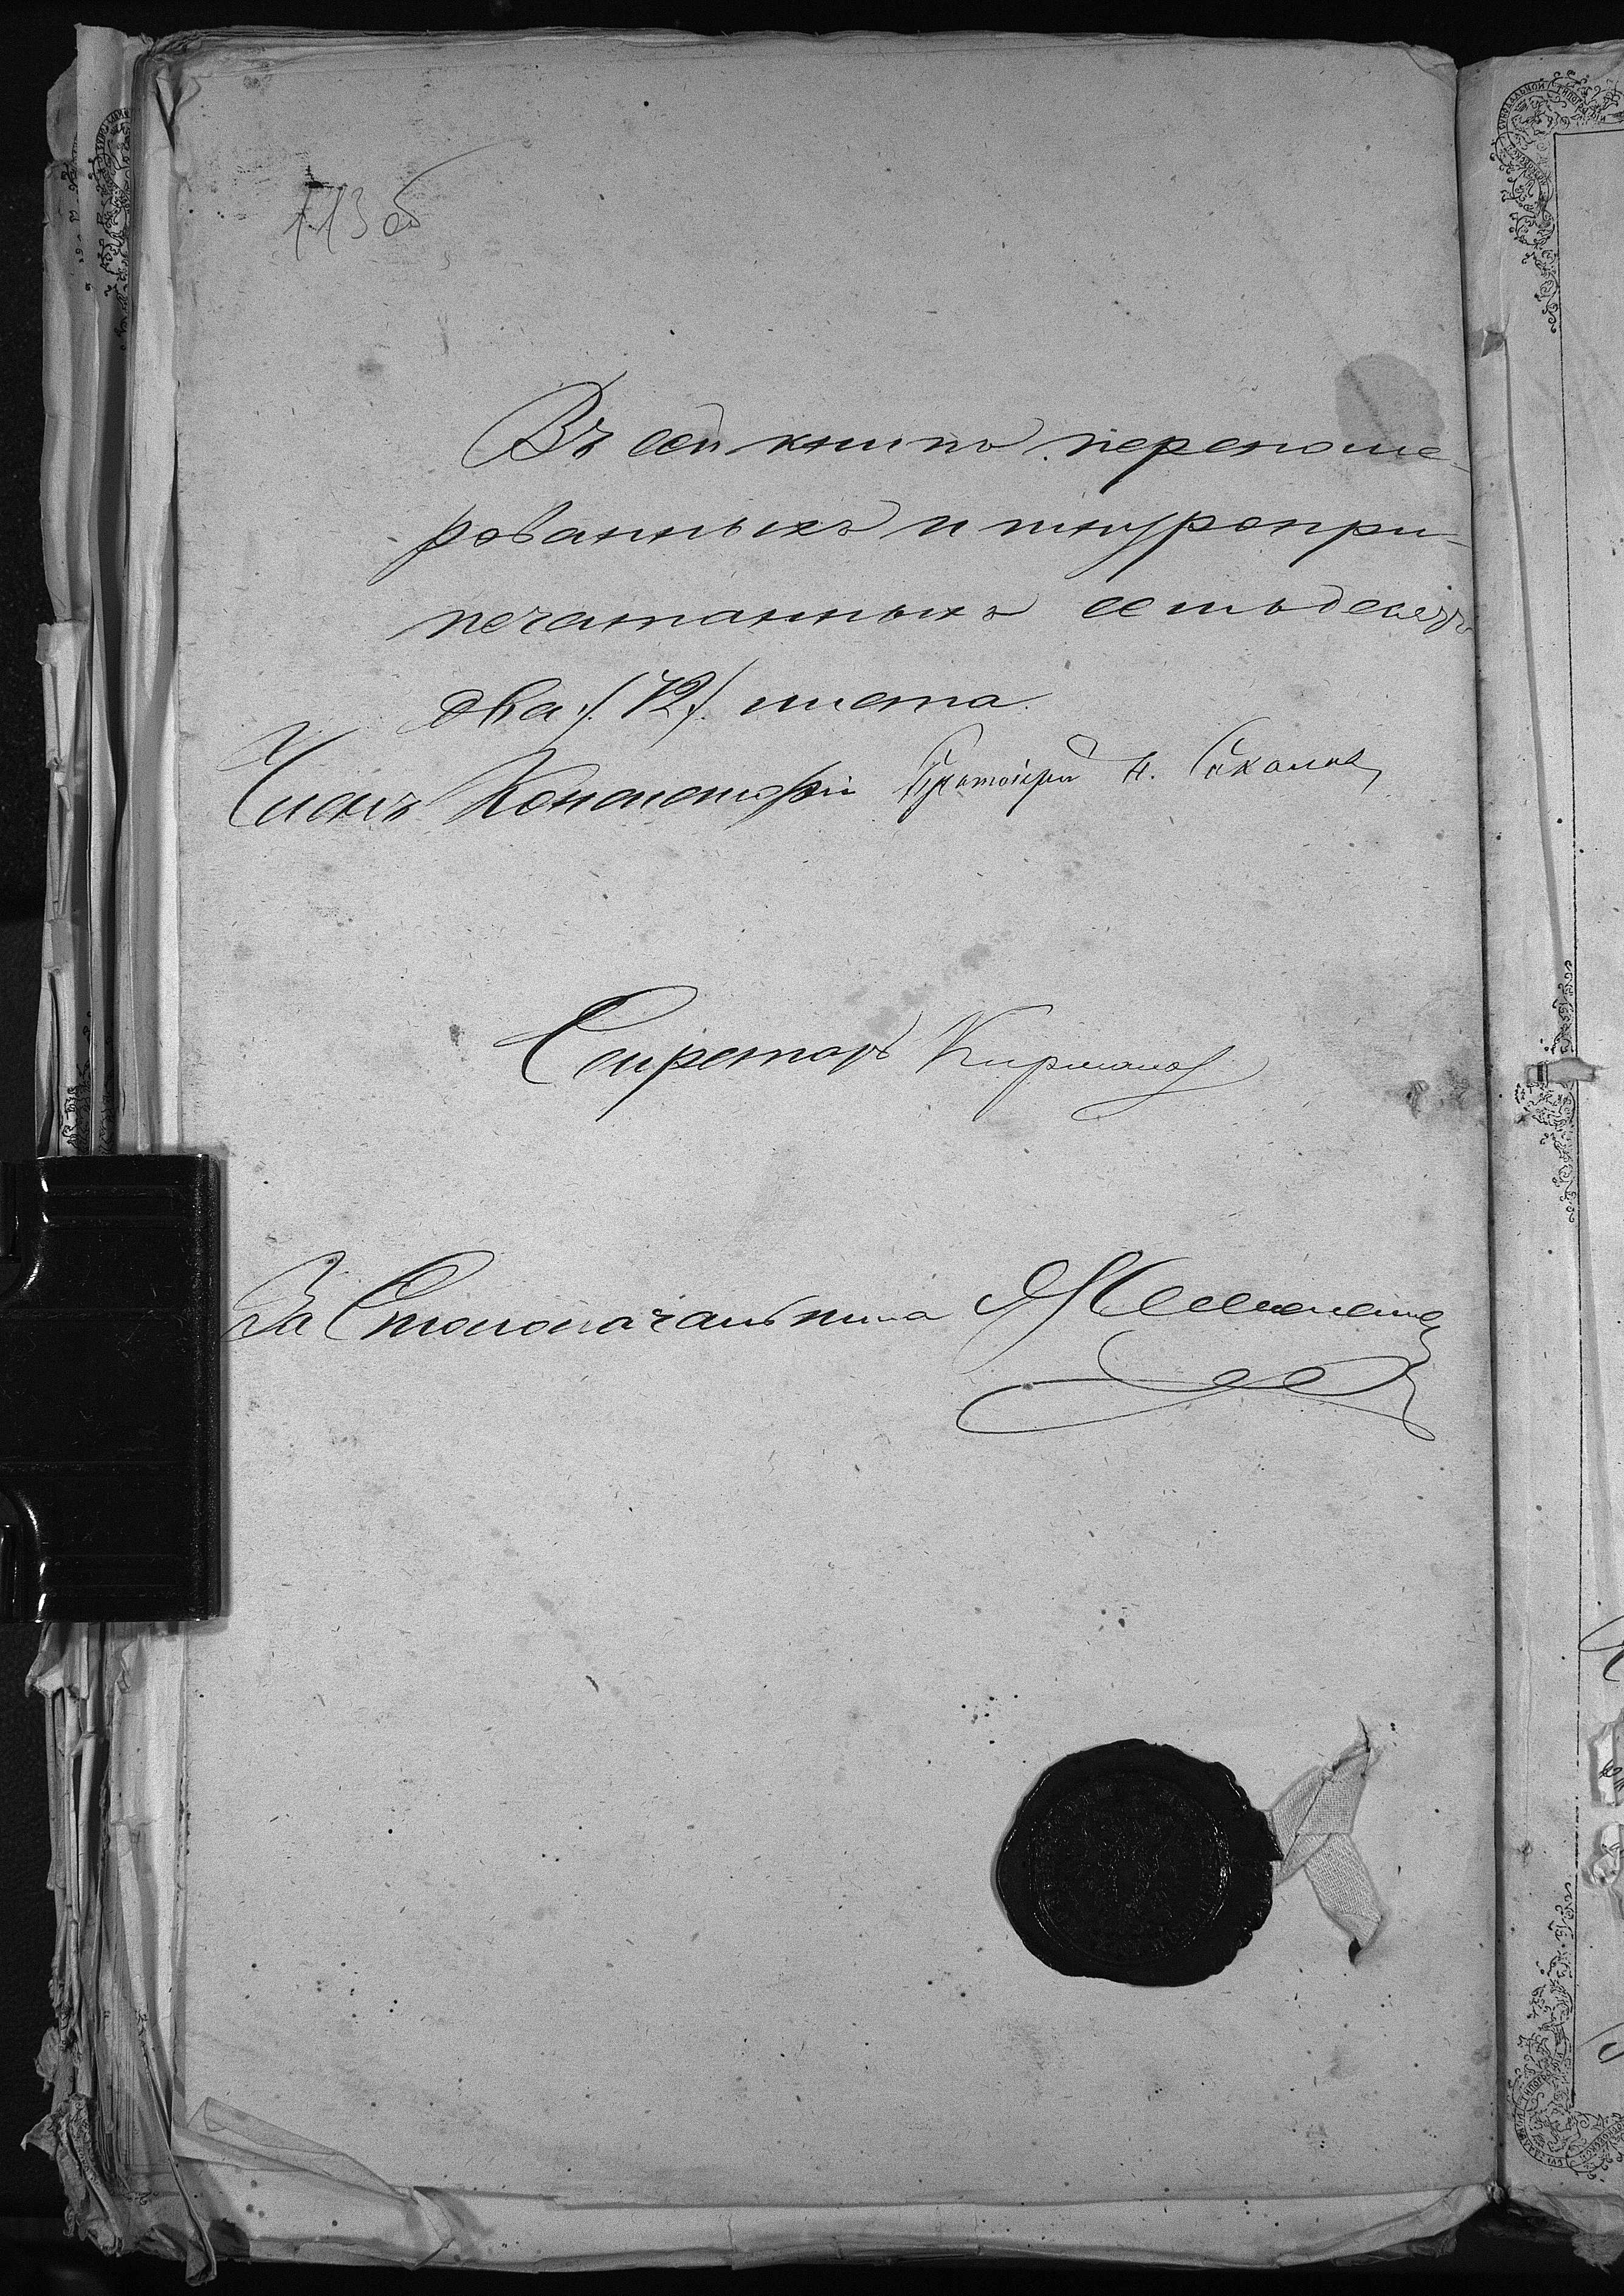 113 об
Въ сей книге перенуме-
рованныхъ и шнуропри-
печатанныхъ семьдесятъ
два /72/ листа.
Членъ Консисторiи Протоiерей Н. Соколовъ
Секретарь
За Столоначальника